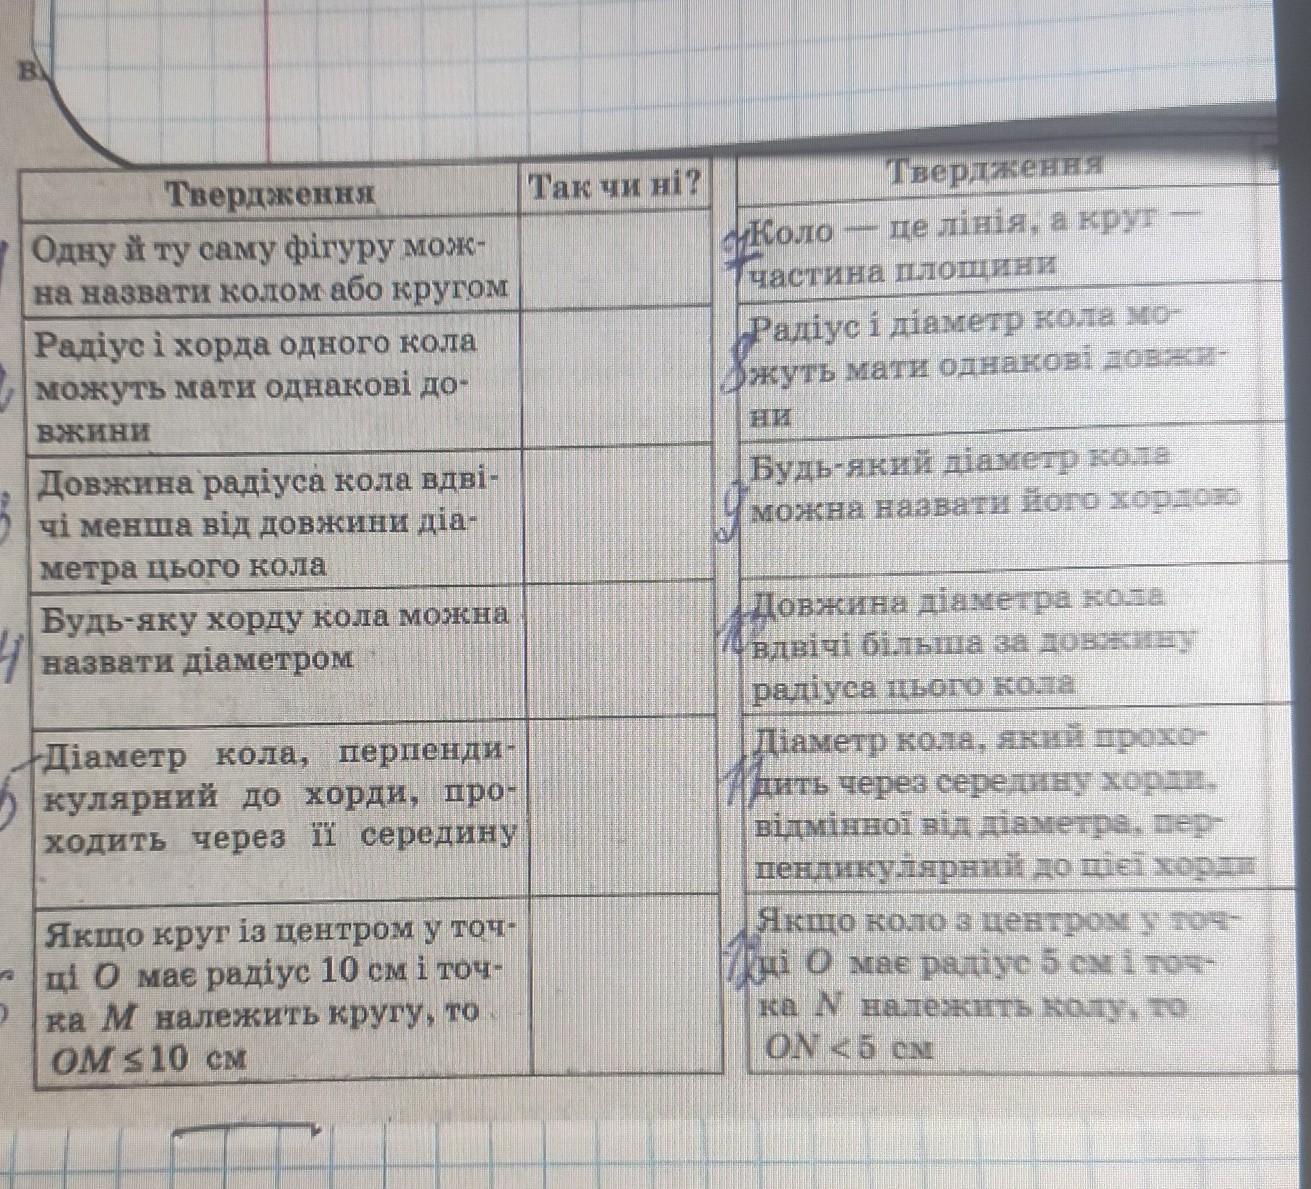 в
Твердження
Так чи ні?
Одну й ту саму фігуру мож-
на назвати колом або кругом
Радіус і хорда одного кола
можуть мати однакові до-
вжини
Довжина радіуса кола вдві-
чі менша від довжини діа-
метра цього кола
4
Будь-яку хорду кола можна
назвати діаметром
Діаметр кола, перпенди-
кулярний до хорди, про-
ходить через її середину
Якщо круг із центром у точ-
ці O має радіус 10 см і точ-
ка M належить кругу, то
OM ≤ 10 см
Твердження
7
Коло — це лінія, а круг —
частина площини
8
Радіус і діаметр кола мо-
жуть мати однакові довжи-
ни
9
Будь-який діаметр кола
можна назвати його хордою
10
Довжина діаметра кола
вдвічі більша за довжину
радіуса цього кола
11
Діаметр кола, який прохо-
дить через середину хорди,
відмінної від діаметра, пер-
пендикулярний до цієї хорди
12
Якщо коло з центром у точ-
ці O має радіус 5 см і точ-
ка N належить колу, то
ON < 5 см